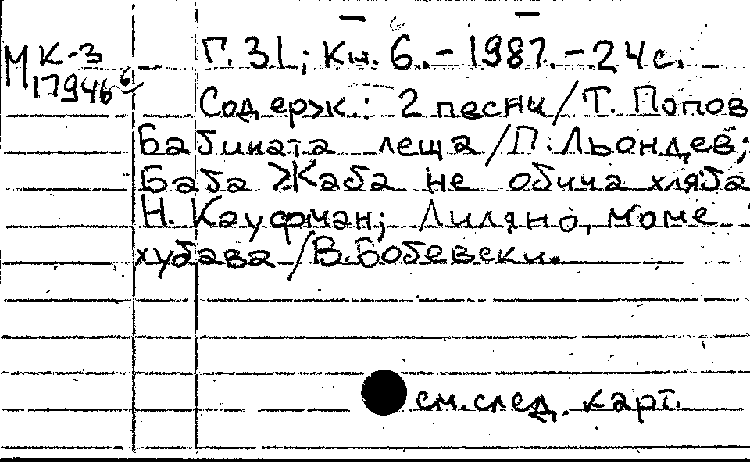 М К-3 Г. 31; Кн. 6. - 1987. - 24 с.
17946
Содерж.: 2 песни/Т. Попов
Бабината леща/П. Льондев;
Баба Жаба не обича хляба
Н. Кауфман; Лиляно, моме
хубава/В. Бобевски.
см. след. карт.